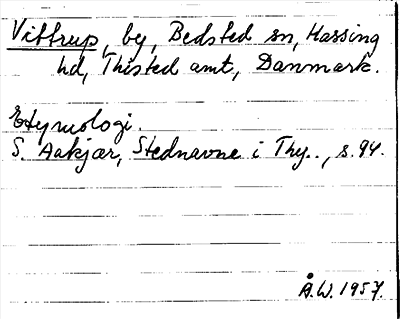 Vittrup, by, Bedsted sn, Hassing
hd, Thisted amt, Danmark.
Etymologi.
S. Aakjær, Stednavne i Thy.., s. 94.
Å.W. 1957.